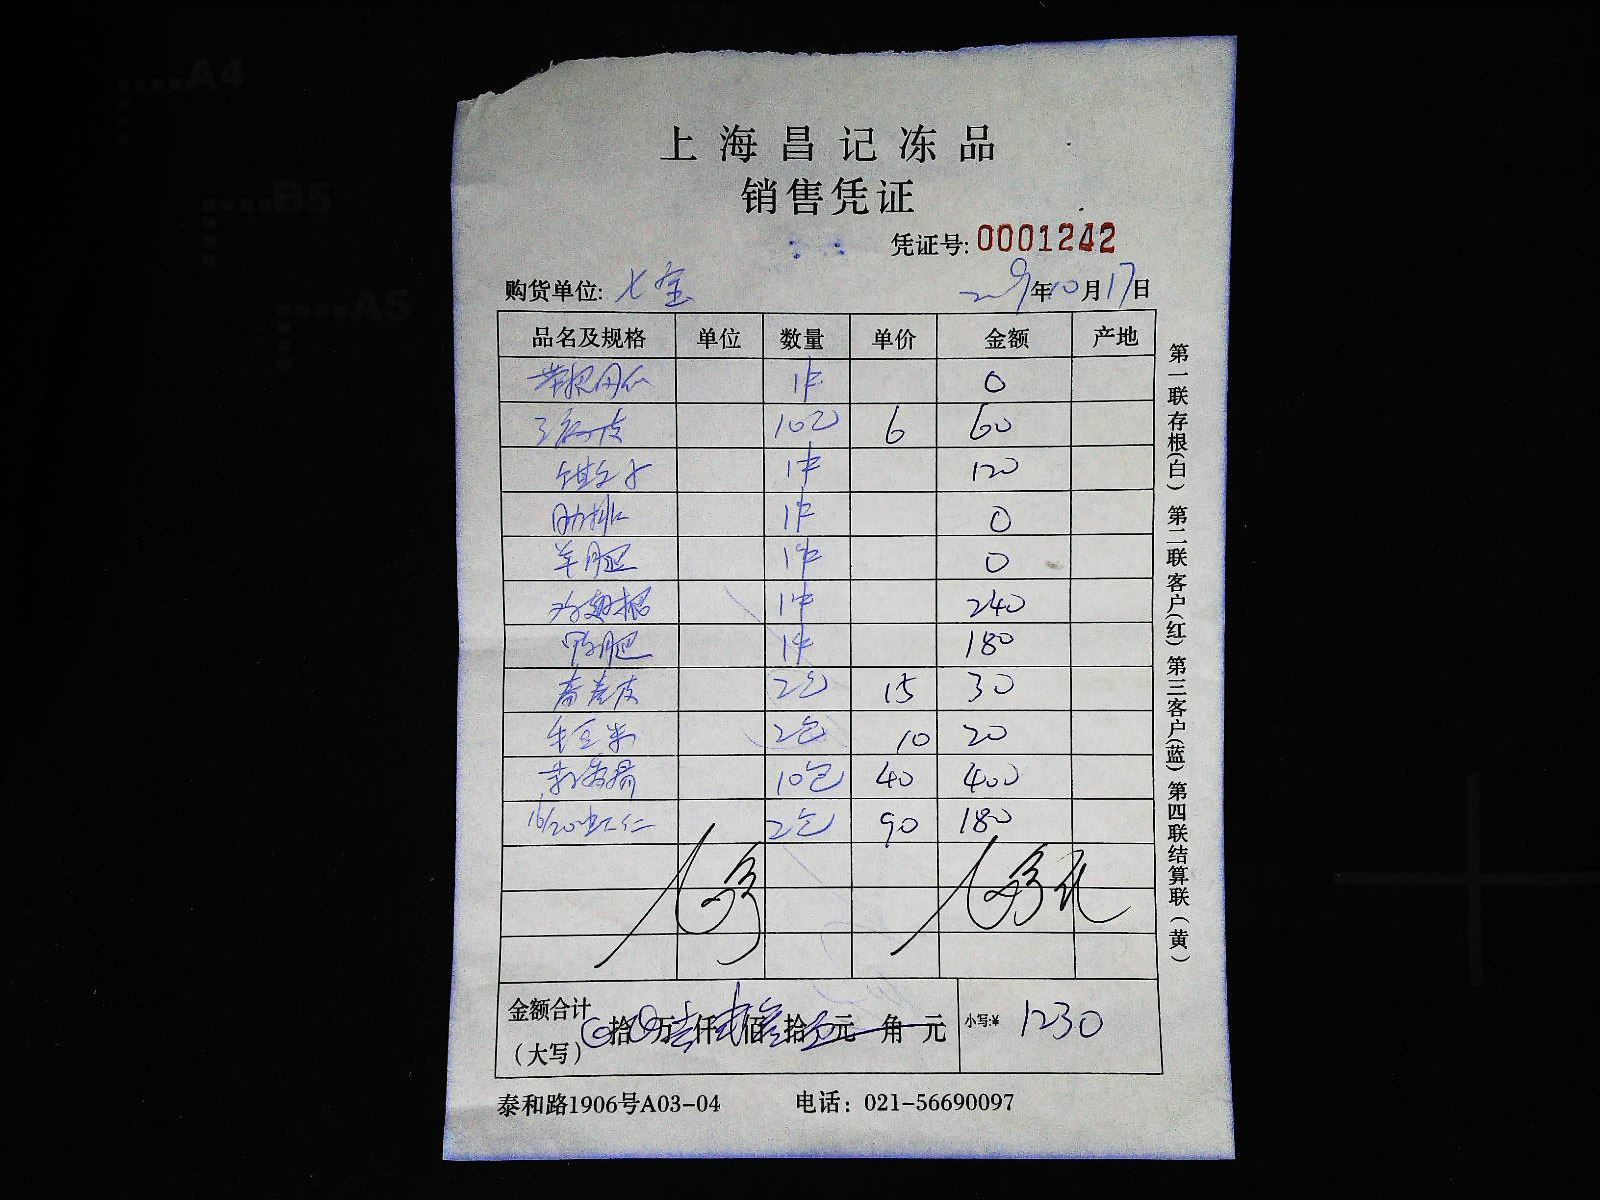 A4
B5
A5
上海昌记冻品
销售凭证
凭证号: 0001242
购货单位: 七宝 年10月17日
品名及规格 单位 数量 单价 金额 产地
1件 0
10包 6 60
1件 120
肋排 1件 0
羊肥 1件 0
鸡翅根 1件 240
鸭肥 1件 180
2包 15 30
毛豆米 2包 10 20
10包 40 400
16/20虾仁 2包 90 180
金额合计
(大写) 拾 万壹仟贰佰叁拾 元 角 元 小写:¥ 1230
泰和路1906号A03-04 电话：021-56690097
第一联存根(白) 第二联客户(红) 第三客户(蓝) 第四联结算联(黄)